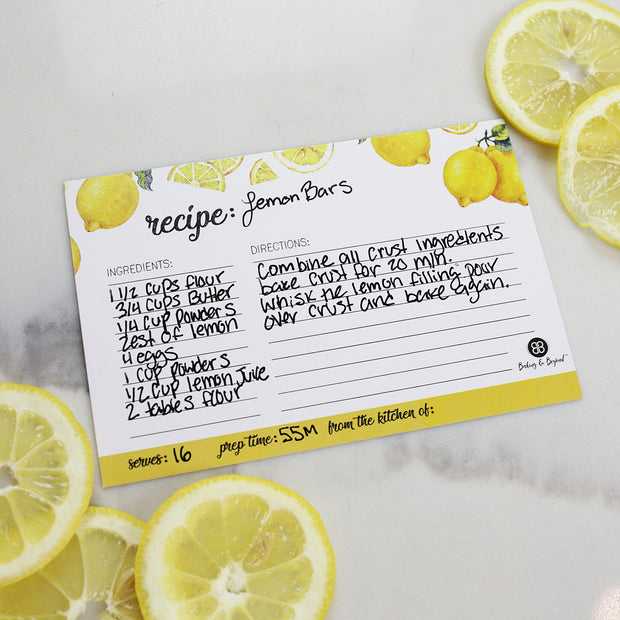 recipe: Lemon Bars
INGREDIENTS:
1 1/2 cups flour
3/4 cups Butter
1/4 cup Powders
zest of lemon
4 eggs
1 cup Powders
1/2 cup lemon Juice
2 tables flour
DIRECTIONS:
Combine all Crust Ingredients
bake Crust for 20 min.
Whisk the lemon filling pour
over crust and bake again.
Baking & Beyond
serves: 16 prep time: 55M from the kitchen of: